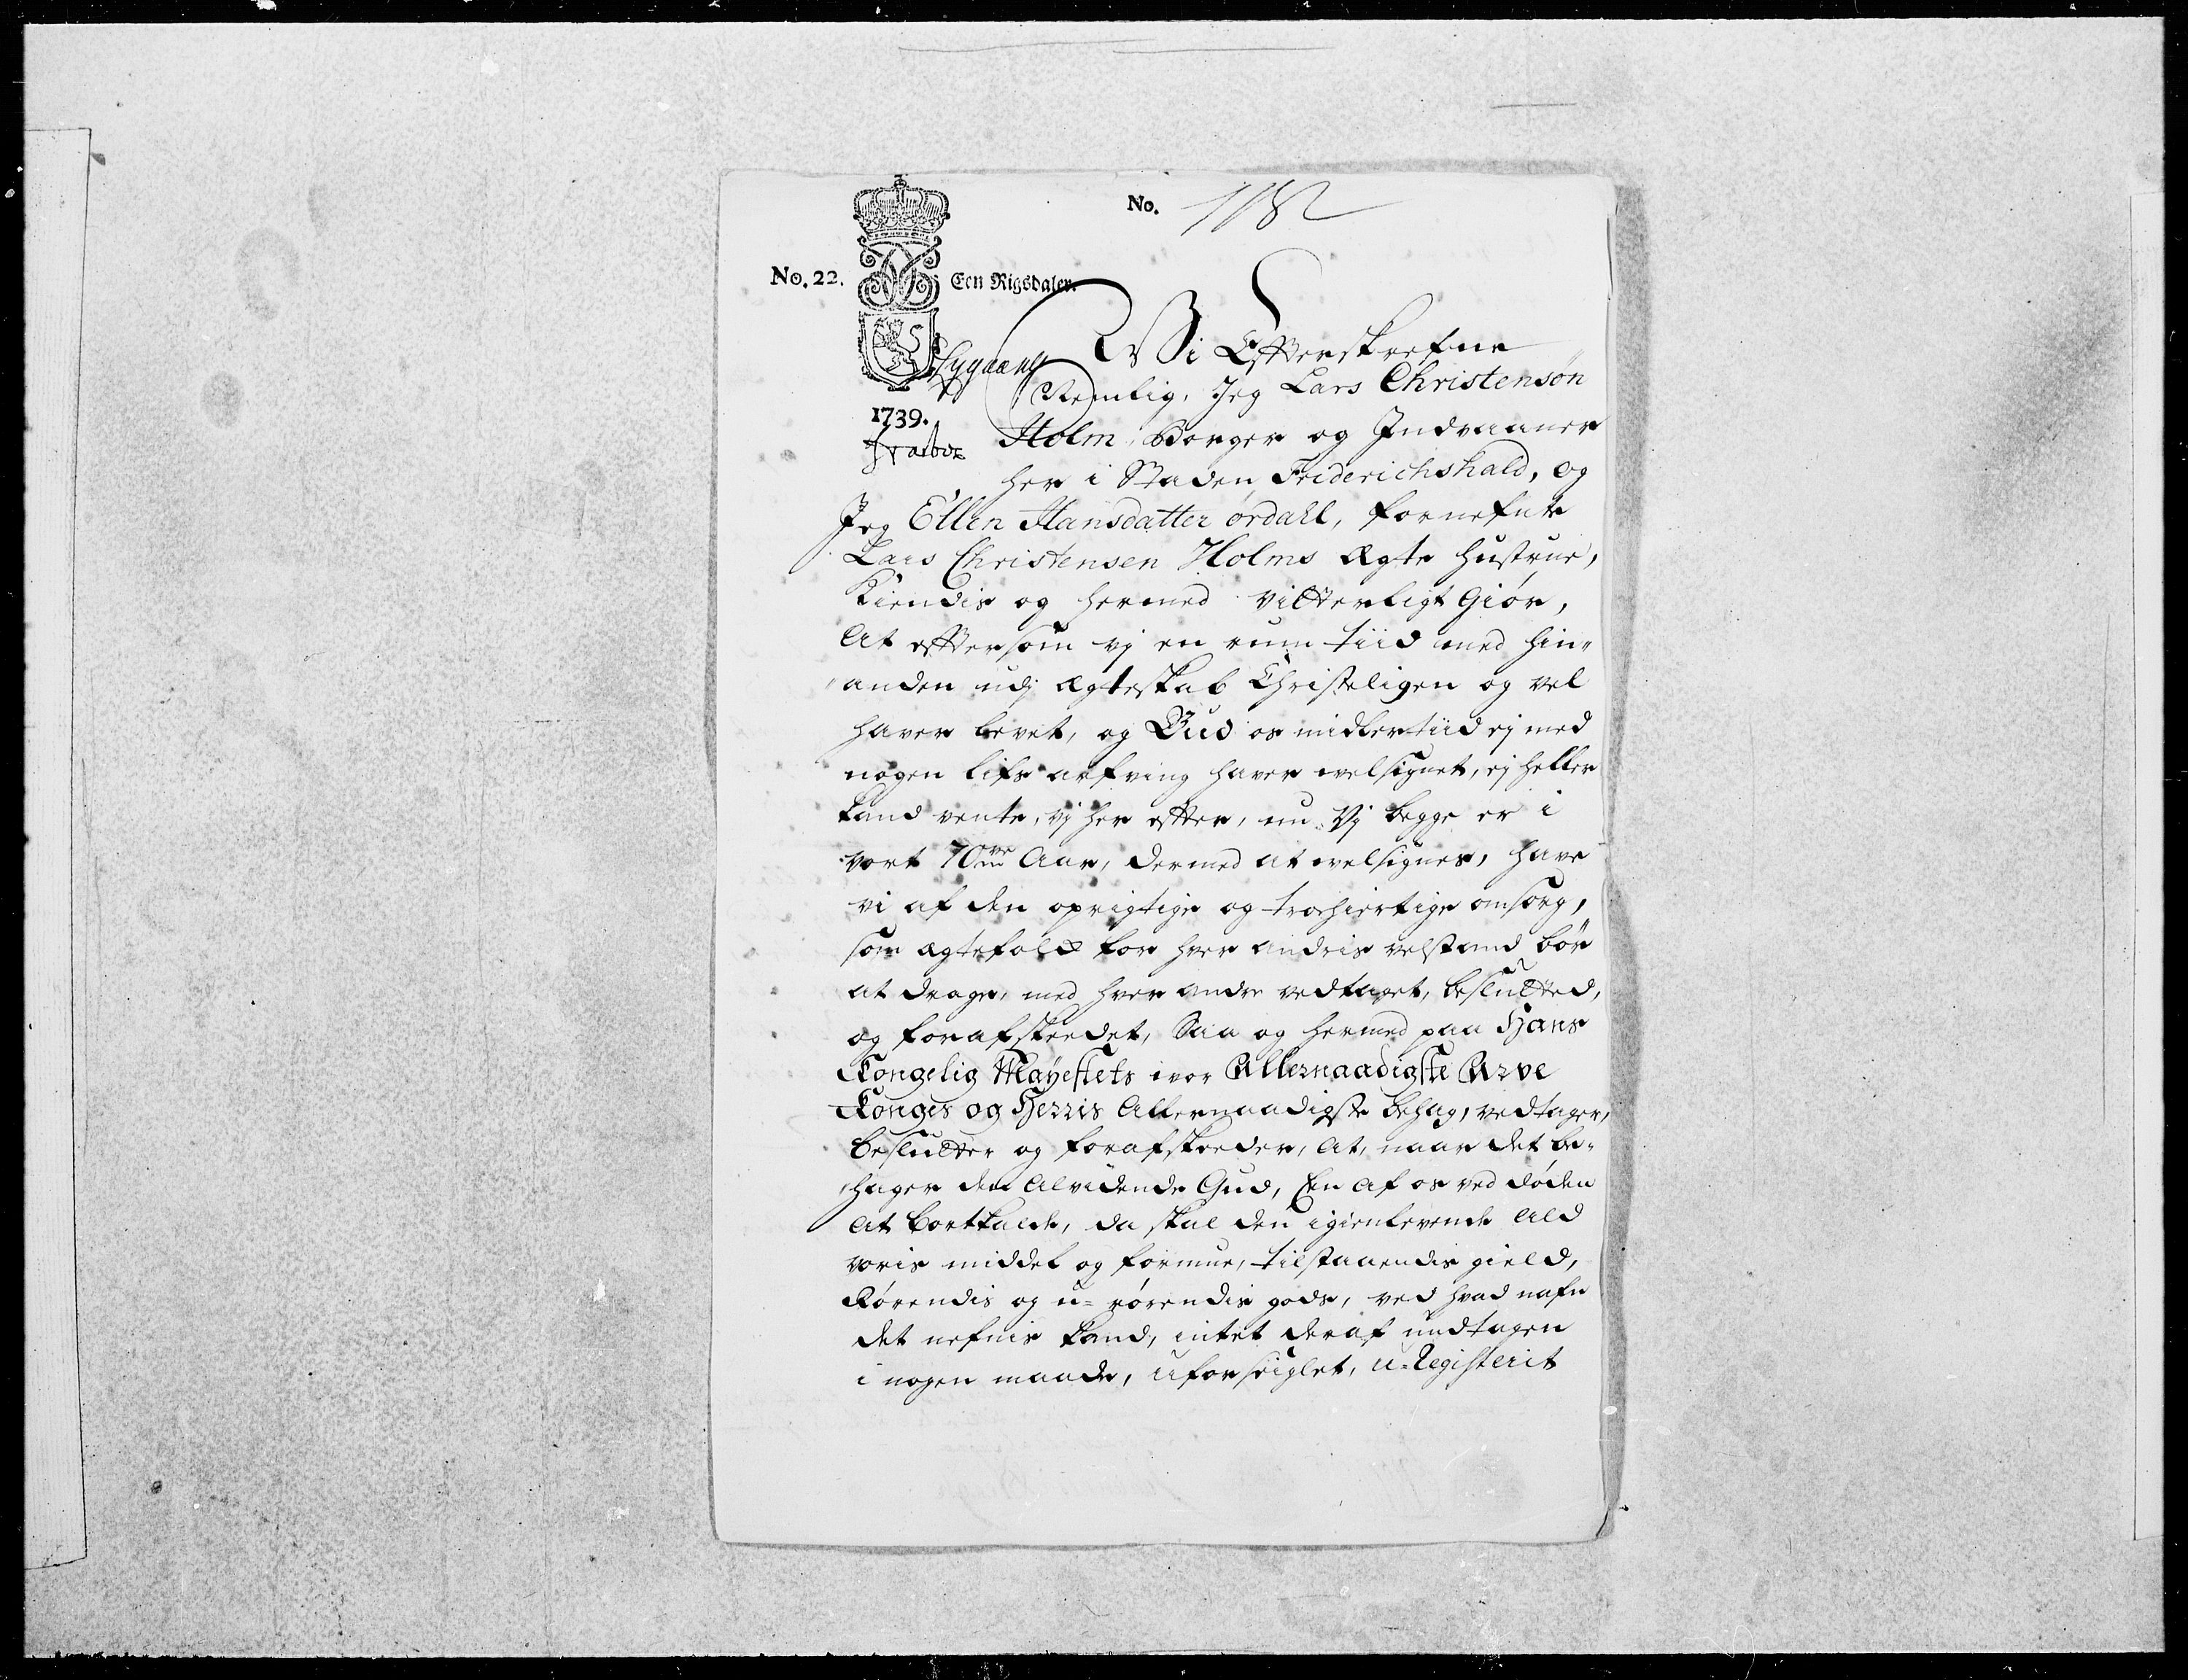 No. 1182
No. 22.
Een Rigsdaler.
1739.
Wi Efterskrefne
Nemlig, Jeg Lars Christensön
Holm, Borger og Indvaaner
her i Staden Friderichshald, og
Jeg Ellen Hansdatter ørdahl, fornefnte
Lars Christensen Holms Ægte hustrue,
Kiendis og hermed Vitterligt Giør,
At eftersom vj en rum tiid med hin-
anden udj Ægteskab Christeligen og vel
haver levet, og Gud os midlertiid ej med
nogen lifs arfving haver velsignet, ej heller
kand vente, vj her efter, nu Vj begge er i
vort 70ve Aar, dermed at velsignes, have
vi af den oprigtige og trohiertige omsorg,
som Ægtefolck for hver andris velstand bør
at drage, med hver andre vedtaget, besluttted,
og forafskeedet, Saa og hermed paa Hans
Kongelig Mayestets vor Allernaadigste Arve
Konges og Herris Allernaadigste behag, vedtager,
beslutter og forafskeeder, At, naar det be-
hager den Alvidende Gud, Een Af os ved døden
At bortkalde, da skal den igienlevende Ald
voris middel og formue, tilstaaendis gield,
Rørendis og u-rørendis gods, ved hvad nafn
det nefnis kand, intet deraf undtagen
i nogen maade, uforseiglet, u-Registerit